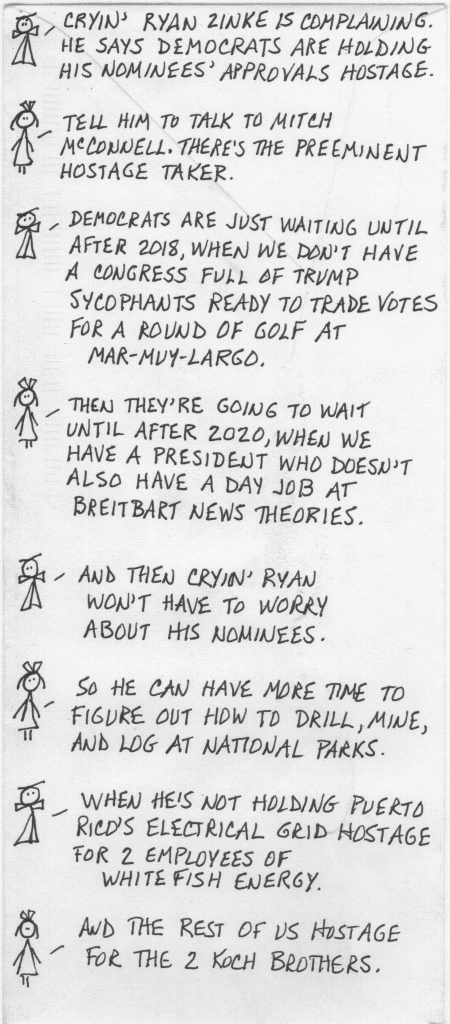 CRYIN' RYAN ZINKE IS COMPLAINING.
HE SAYS DEMOCRATS ARE HOLDING
HIS NOMINEES' APPROVALS HOSTAGE.
TELL HIM TO TALK TO MITCH
McCONNELL. THERE'S THE PREEMINENT
HOSTAGE TAKER.
DEMOCRATS ARE JUST WAITING UNTIL
AFTER 2018, WHEN WE DON'T HAVE
A CONGRESS FULL OF TRUMP
SYCOPHANTS READY TO TRADE VOTES
FOR A ROUND OF GOLF AT
MAR-MUY-LARGO.
THEN THEY'RE GOING TO WAIT
UNTIL AFTER 2020, WHEN WE
HAVE A PRESIDENT WHO DOESN'T
ALSO HAVE A DAY JOB AT
BREITBART NEWS THEORIES.
AND THEN CRYIN' RYAN
WON'T HAVE TO WORRY
ABOUT HIS NOMINEES.
SO HE CAN HAVE MORE TIME TO
FIGURE OUT HOW TO DRILL, MINE,
AND LOG AT NATIONAL PARKS.
WHEN HE'S NOT HOLDING PUERTO
RICO'S ELECTRICAL GRID HOSTAGE
FOR 2 EMPLOYEES OF
WHITEFISH ENERGY.
AND THE REST OF US HOSTAGE
FOR THE 2 KOCH BROTHERS.